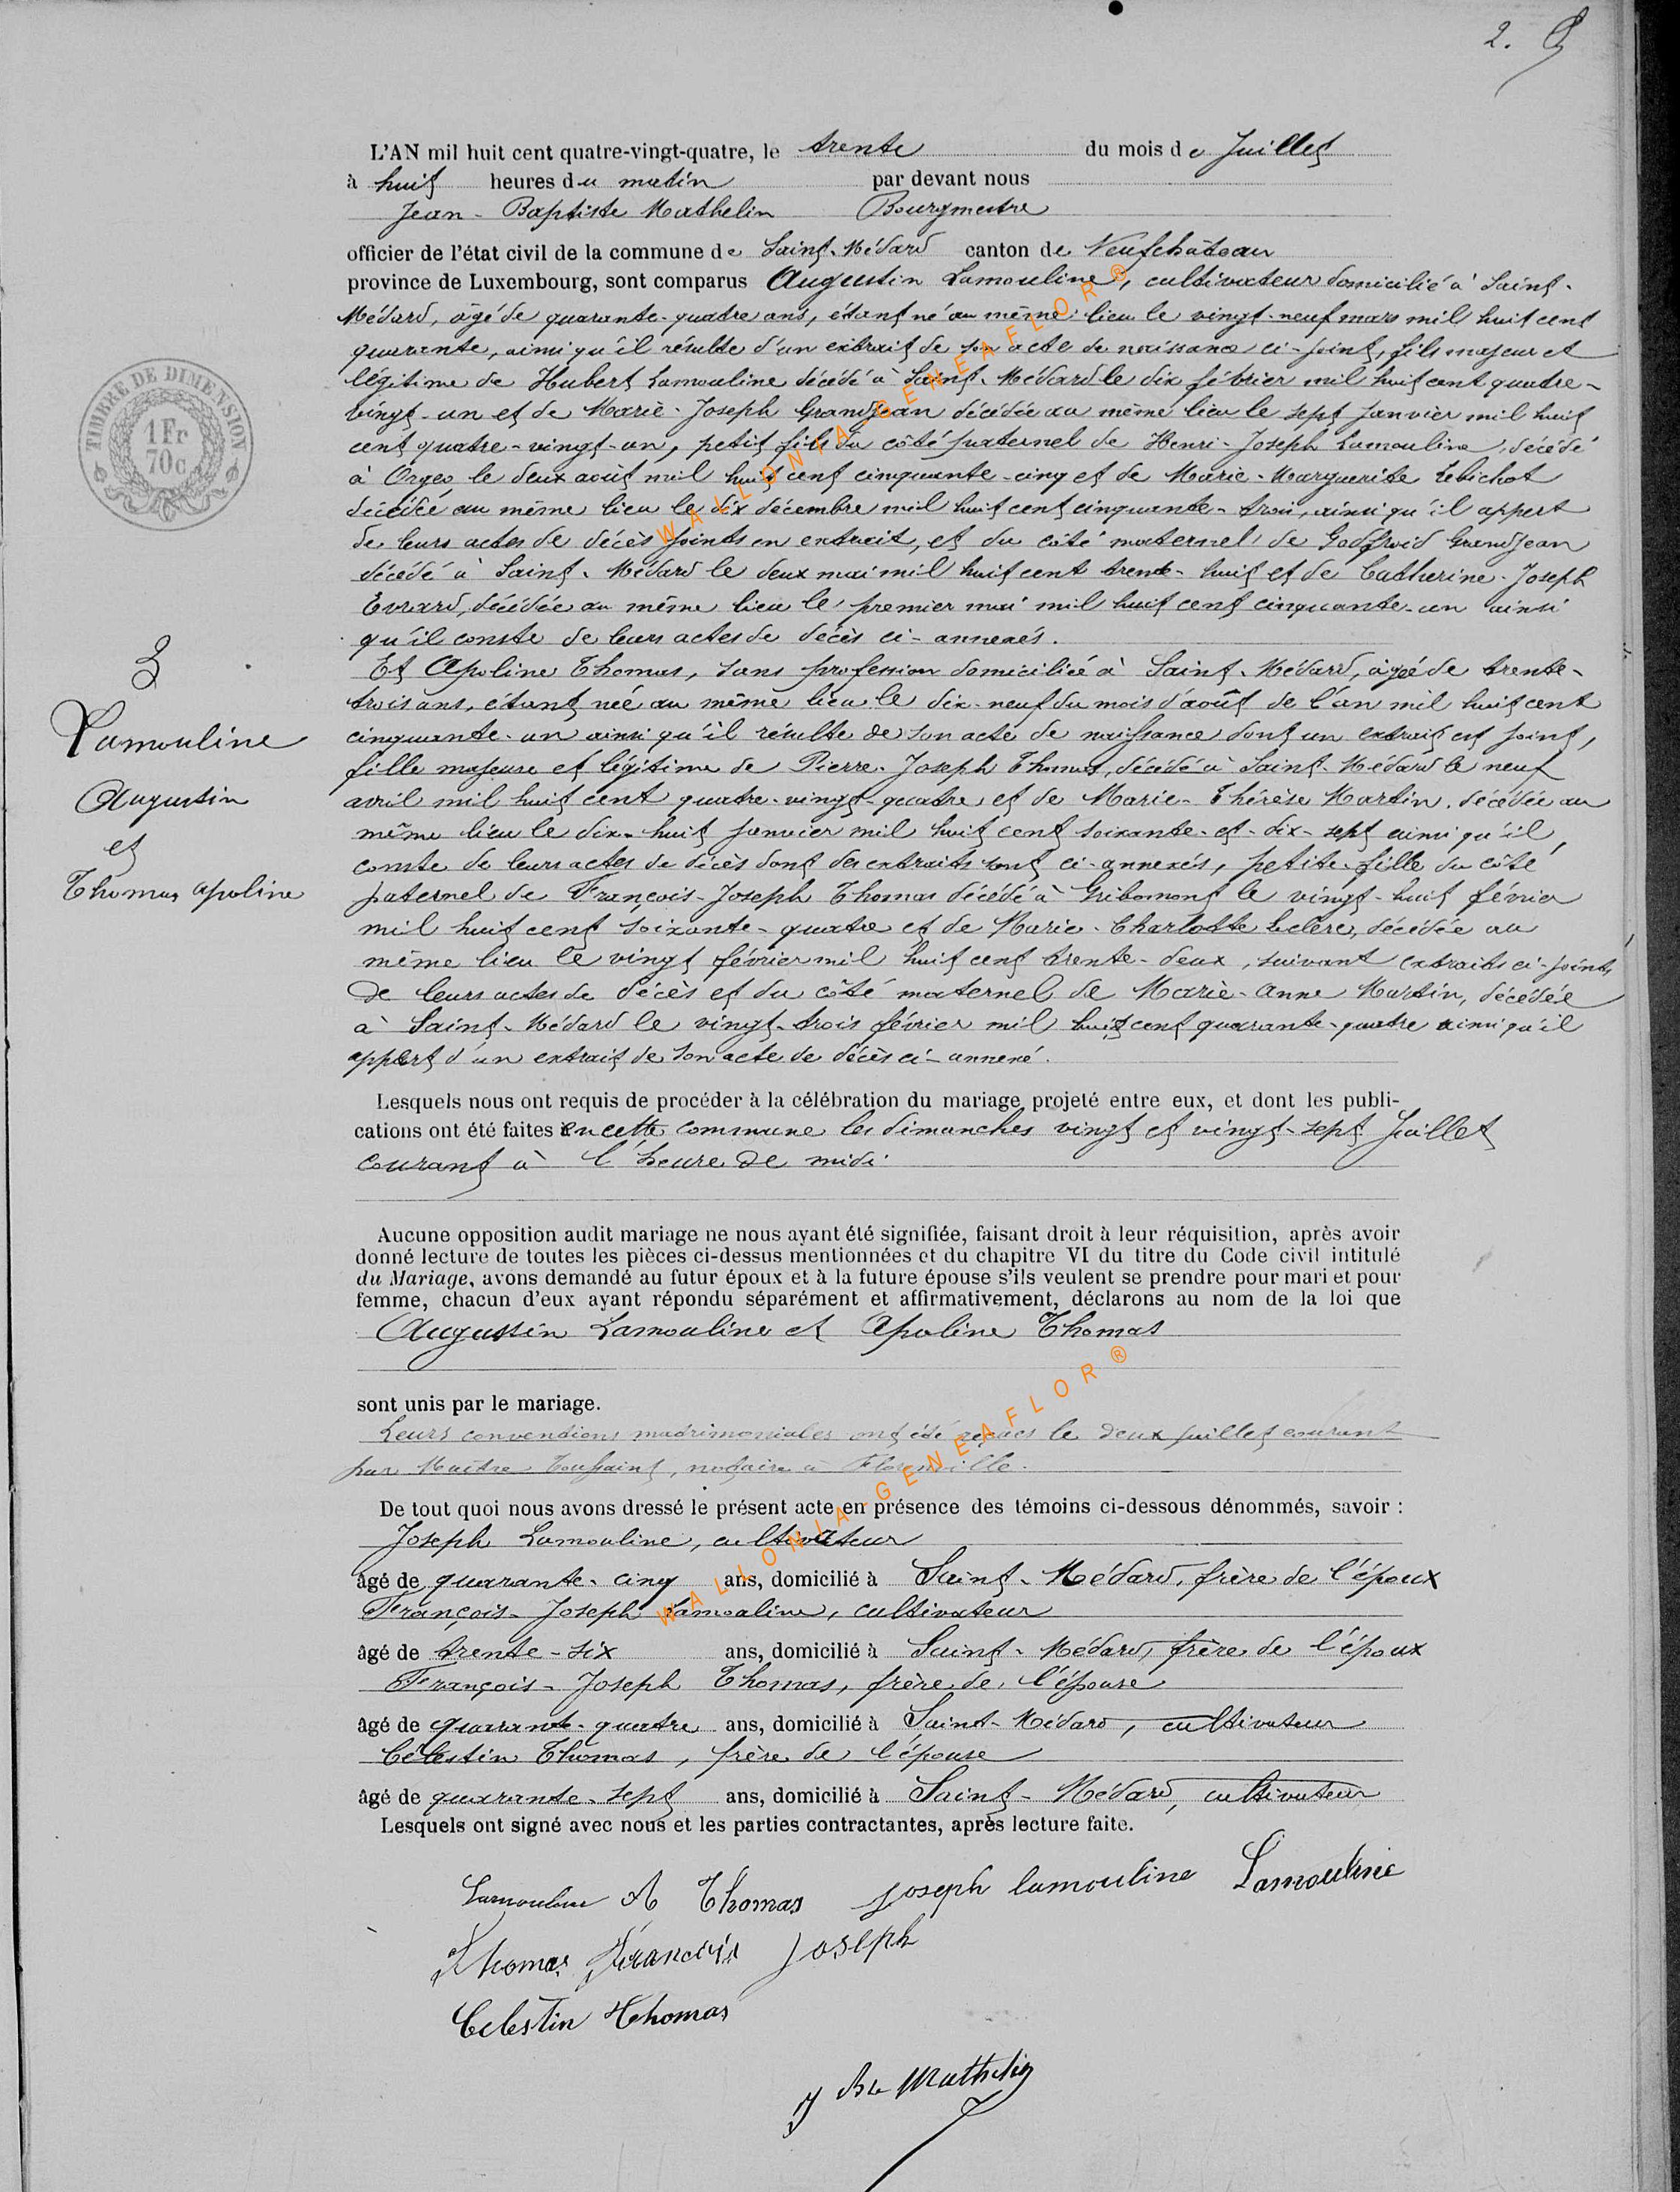 2.
L'AN mil huit cent quatre-vingt-quatre, le trente du mois de Juillet
à huit heures du matin par devant nous
Jean-Baptiste Mathelin Bourgmestre
officier de l'état civil de la commune de Saint-Médard canton de Neufchâteau
province de Luxembourg, sont comparus Augustin Lamouline, cultivateur domicilié à Saint-
Médard, âgé de quarante-quatre ans, étant né au même lieu le vingt-neuf mars mil huit cent
quarante, ainsi qu'il résulte d'un extrait de son acte de naissance ci-joint, fils majeur et
légitime de Hubert Lamouline décédé à Saint-Médard le dix février mil huit cent quatre-
vingt-un et de Marie-Joseph Grandjean décédée au même lieu le sept janvier mil huit
cent quatre-vingt-un, petit fils du côté paternel de Henri-Joseph Lamouline, décédé
à Orgeo le deux août mil huit cent cinquante-cinq et de Marie-Marguerite Lebichot
décédée au même lieu le dix décembre mil huit cent cinquante-trois, ainsi qu'il appert
de leurs actes de décès joints en extrait, et du côté maternel de Godfroid Grandjean
décédé à Saint-Médard le deux mai mil huit cent trente-huit et de Catherine-Joseph
Evrard, décédée au même lieu le premier mai mil huit cent cinquante-un ainsi
qu'il conste de leurs actes de décès ci-annexés.
Et Apoline Thomas, sans profession domiciliée à Saint-Médard, âgée de trente-
trois ans, étant née au même lieu le dix-neuf du mois d'août de l'an mil huit cent
cinquante-un ainsi qu'il résulte de son acte de naissance dont un extrait est joint,
fille majeure et légitime de Pierre-Joseph Thomas, décédé à Saint-Médard le neuf
avril mil huit cent quatre-vingt-quatre et de Marie-Thérèse Martin, décédée au
même lieu le dix-huit janvier mil huit cent soixante-et-dix-sept ainsi qu'il
conste de leurs actes de décès dont des extraits sont ci-annexés, petite-fille du côté
paternel de François-Joseph Thomas décédé à Gribomont le vingt-huit février
mil huit cent soixante-quatre et de Marie-Charlotte Leclere, décédée au
même lieu le vingt février mil huit cent trente-deux, suivant extraits ci-joints
de leurs actes de décès et du côté maternel de Marie-Anne Martin, décédée
à Saint-Médard le vingt-trois février mil huit cent quarante-quatre ainsi qu'il
appert d'un extrait de son acte de décès ci-annexé.
3
Lamouline
Augustin
et
Thomas Apoline
TIMBRE DE DIMENSION
1 Fr
70c
Lesquels nous ont requis de procéder à la célébration du mariage projeté entre eux, et dont les publi-
cations ont été faites en cette commune les dimanches vingt et vingt-sept Juillet
courant à l'heure de midi
Aucune opposition audit mariage ne nous ayant été signifiée, faisant droit à leur réquisition, après avoir
donné lecture de toutes les pièces ci-dessus mentionnées et du chapitre VI du titre du Code civil intitulé
du Mariage, avons demandé au futur époux et à la future épouse s'ils veulent se prendre pour mari et pour
femme, chacun d'eux ayant répondu séparément et affirmativement, déclarons au nom de la loi que
Augustin Lamouline et Apoline Thomas
sont unis par le mariage.
Leurs conventions matrimoniales ont été reçues le deux juillet courant
par Maître Toussaint, notaire à Florenville.
De tout quoi nous avons dressé le présent acte en présence des témoins ci-dessous dénommés, savoir :
Joseph Lamouline, cultivateur
âgé de quarante-cinq ans, domicilié à Saint-Médard, frère de l'époux
François-Joseph Lamouline, cultivateur
âgé de trente-six ans, domicilié à Saint-Médard, frère de l'époux
François-Joseph Thomas, frère de l'épouse
âgé de quarante-quatre ans, domicilié à Saint-Médard, cultivateur
Célestin Thomas, frère de l'épouse
âgé de quarante-sept ans, domicilié à Saint-Médard, cultivateur
Lesquels ont signé avec nous et les parties contractantes, après lecture faite.
Lamouline A Thomas joseph lamouline Lamouline
Thomas François Joseph
Celestin Thomas
J Bte Mathelin
WALLONIA-GENEAFLOR®
WALLONIA-GENEAFLOR®